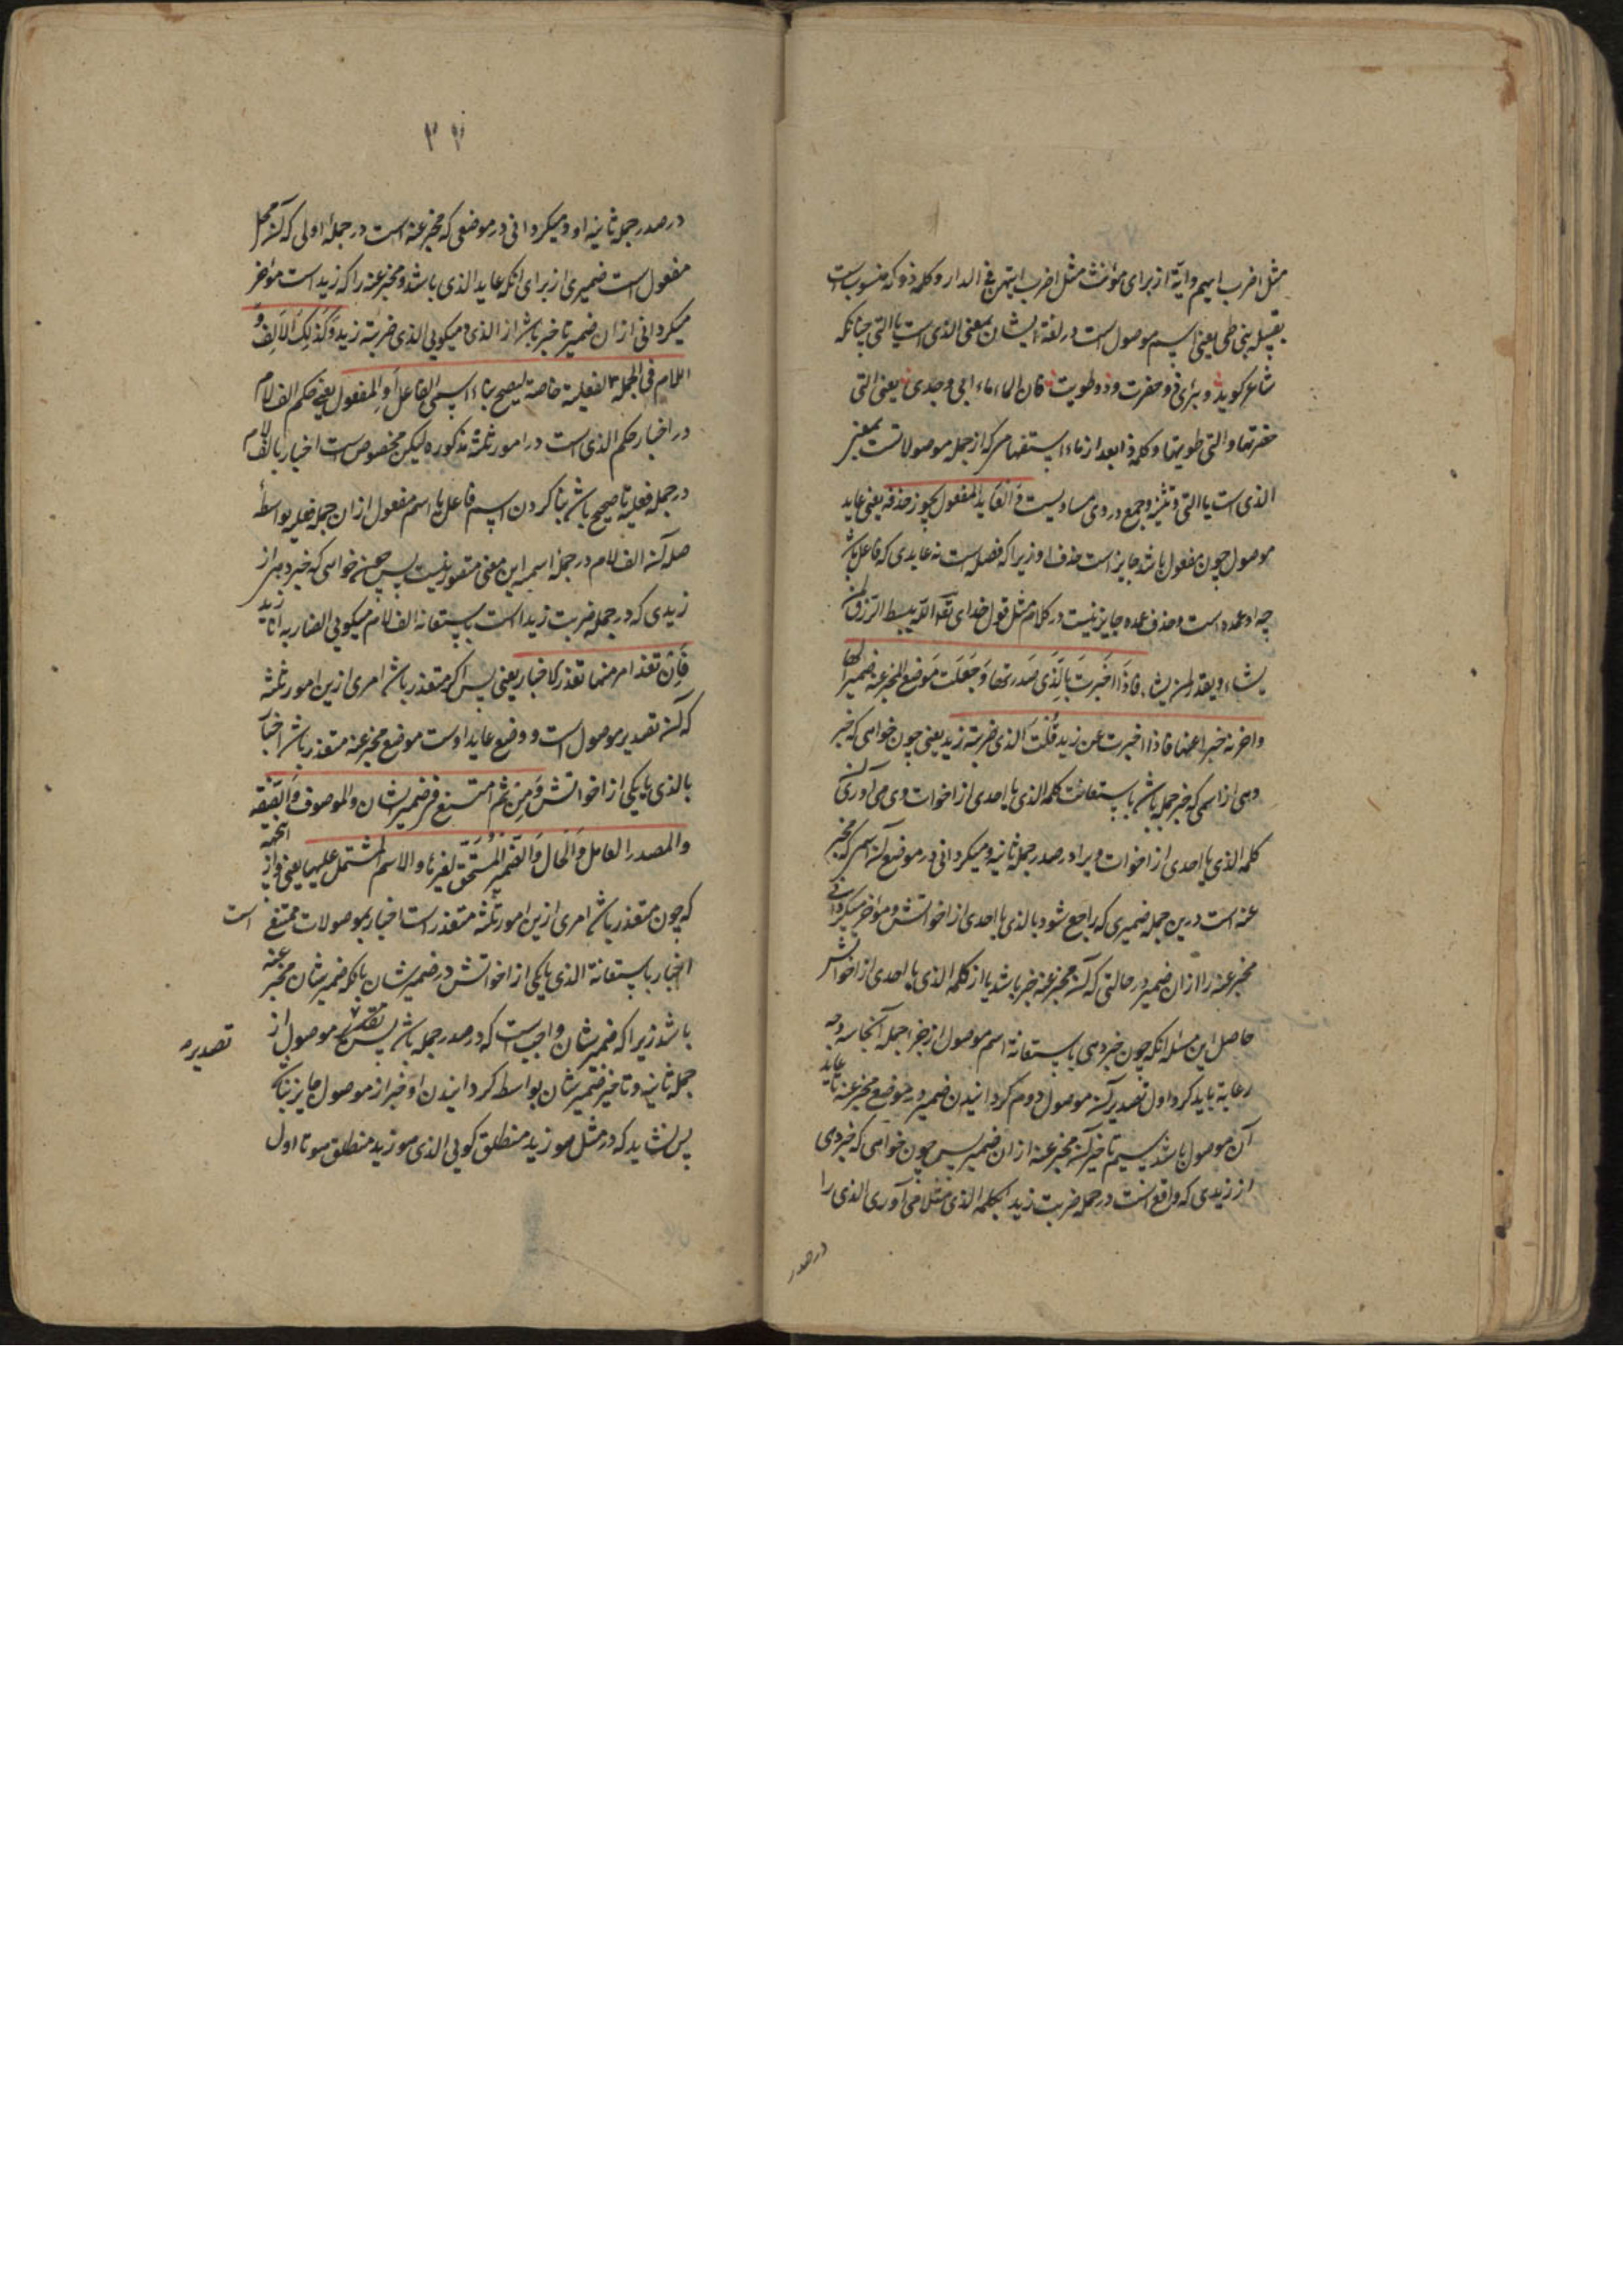 مثل اضرب ایهم وایة از برای مؤنث مثل اضرب ایتهن فی الدار و کلمه ذو که منسوبست
بقبیله بنی طی یعنی اسم موصول است در لغة ایشان بمعنی الذی است یا التی چنانکه
شاعر کوید و بئری ذو حفرت وذو طویت فان الماء ماء ابی وجدی یعنی التی
حفرتها والتی طویتها و کلمه ذا بعد از ماء استفهامی که از جمله موصولاتست بمعنی
الذی است یا التی و تثنیه و جمع در وی مساویست والعاید المفعول یجوز حذفه یعنی عاید
موصول چون مفعول باشد جایز است حذف او زیرا که فضله است نه عایدی که فاعل باشد
چه او عمده است و حذف عمده جایز نیست در کلام مثل قول خدای تعه الله یبسط الرزق لمن
یشاء ویقدر لمن یشاء فاذا اخبرت بالذی صدرتها وجعلت موضع المخبر عنه ضمیرا لها
واخرته خبرا عنها فاذا اخبرت عن زید قلت الذی ضربته زید یعنی چون خواهی که خبر
دهی از اسمی که خبر جمله باشد باستعانت کلمه الذی یا احدی از اخوات وی می آوری آن
کلمه الذی یا احدی از اخوات ویرا در صدر جمله ثانیه و میکردانی در موضع آن اسمی که مخبر
عنه است درین جمله ضمیری که راجع شود بالذی یا احدی از اخواتش و مؤخر میکردانی
مخبر عنه را از ان ضمیر در حالتی که آن مخبر عنه خبر باشد یا از کلمه الذی یا احدی از اخواتش
حاصل این مسئله انکه چون خبر دهی باستعانة اسم موصول از جزء جمله آنجا سه وجه
رعایة باید کرد اول تصدیر آن موصول دوم کردانیدن ضمیر در موضع مخبر عنه تا عاید
آن موصول باشد سیم تاخیر آن مخبر عنه از ان ضمیر پس چون خواهی که خبر دهی
از زیدی که واقع است در جمله ضربت زید بکلمه الذی مثلا می آوری الذی را
در صدر
۳۴
در صدر جمله ثانیه او و میکردانی در موضعی که مخبر عنه است در جمله اولی که آن محل
مفعول است ضمیری از برای انکه عاید الذی باشد و مخبر عنه را که زید است مؤخر
میکردانی از ان ضمیر تا خبر باشد از الذی و میکویی الذی ضربته زید وکذلک الالف و
اللام فی الجملة الفعلیة خاصة لیصح بناء اسمی الفاعل او المفعول یعنی حکم الف لام
در اخبار حکم الذی است در امور ثلثه مذکوره لیکن مخصوص است اخبار بالف لام
در جمله فعلیه تا صحیح باشد بنا کردن اسم فاعل یا اسم مفعول از ان جمله فعلیه بواسطه
صله آن الف لام در جمله اسمیه این معنی متصور نیست پس چون خواهی که خبر دهی از
زیدی که در جمله ضربت زید است باستعانة الف لام میکویی الضاربه انا زید
فان تعذر امر منها تعذر الاخبار یعنی پس اکر متعذر باشد امری ازین امور ثلثه
که آن تصدیر موصول است و وضع عاید اوست موضع مخبر عنه متعذر باشد اخبار
بالذی یا یکی از اخواتش ومن ثم امتنع فی ضمیر الشان والموصوف والصفة
والمصدر العامل والحال والضمیر المستحق لغیرها والاسم المشتمل علیها یعنی و از اینجهة
که چون متعذر باشد امری ازین امور ثلثه متعذر است اخبار بموصولات ممتنع است
اخبار باستعانة الذی یا یکی از اخواتش در ضمیر شان بانکه ضمیر شان مخبر عنه
باشد زیرا که ضمیر شان واجبست که در صدر جمله باشد پس موصول از
تصدیر
جمله ثانیه و تاخیر ضمیر شان بواسطه کردانیدن او خبر از موصول جایز نباشد
پس نشاید که در مثل هو زید منطلق کویی الذی هو زید منطلق هو تا اول